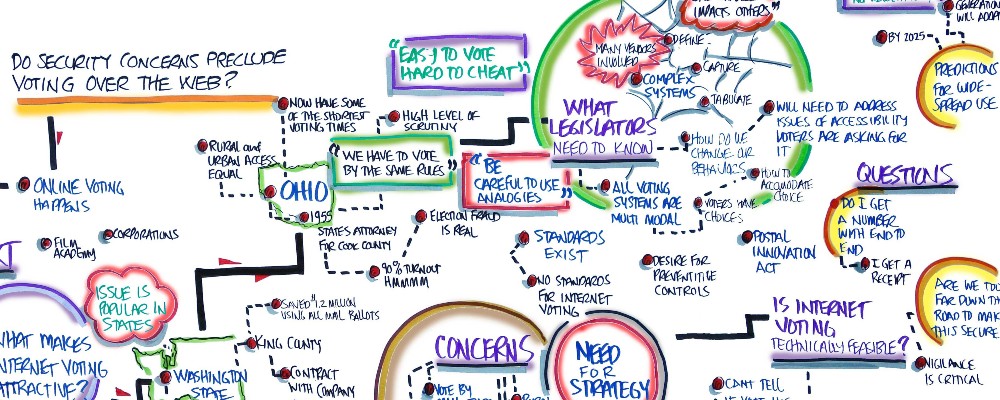 DO SECURITY CONCERNS PRECLUDE
VOTING OVER THE WEB?
ONLINE VOTING
HAPPENS
FILM
ACADEMY
CORPORATIONS
ISSUE IS
POPULAR IN
STATES
WHAT MAKES
INTERNET VOTING
ATTRACTIVE?
WASHINGTON
STATE
NOW HAVE SOME
OF THE SHORTEST
VOTING TIMES
HIGH LEVEL OF
SCRUTINY
RURAL AND
URBAN ACCESS
EQUAL
OHIO
"WE HAVE TO VOTE
BY THE SAME RULES"
1955
STATES ATTORNEY
FOR COOK COUNTY
ELECTION FRAUD
IS REAL
90% TURNOUT
HMMMMM
SAVED $1.2 MILLION
USING ALL MAIL BALLOTS
KING COUNTY
CONTRACT
WITH COMPANY
"EASY TO VOTE
HARD TO CHEAT"
"BE
CAREFUL TO USE
ANALOGIES"
CONCERNS
VOTE BY
NEED
FOR
STRATEGY
STANDARDS
EXIST
NO STANDARDS
FOR INTERNET
VOTING
WHAT
LEGISLATORS
NEED TO KNOW
MANY VENDORS
INVOLVED
IMPACTS OTHERS"
DEFINE
CAPTURE
COMPLEX
SYSTEMS
TABULATE
ALL VOTING
SYSTEMS ARE
MULTI MODAL
HOW DO WE
CHANGE OUR
BEHAVIORS
HOW TO
ACCOMODATE
CHOICE
VOTERS HAVE
CHOICES
DESIRE FOR
PREVENTITIVE
CONTROLS
WILL NEED TO ADDRESS
ISSUES OF ACCESSIBILITY
VOTERS ARE ASKING FOR
IT
POSTAL
INNOVATION
ACT
IS INTERNET
VOTING
TECHNICALLY FEASIBLE?
CANT TELL
BY 2025
GENERATION
WILL ADOPT
PREDICTIONS
FOR WIDE-
SPREAD USE
QUESTIONS
DO I GET
A NUMBER
WITH END TO
END
I GET A
RECEIPT
ARE WE TOO
FAR DOWN THE
ROAD TO MAKE
THIS SECURE
VIGILANCE
IS CRITICAL